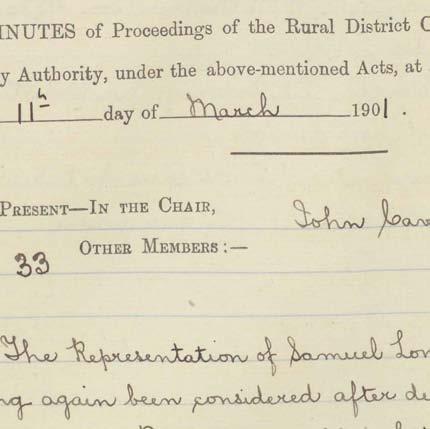 INUTES of Proceedings of the Rural District C
y Authority, under the above-mentioned Acts, at
11h day of March 1901.
PRESENT—IN THE CHAIR,
John Cav
OTHER MEMBERS:—
33
The Representation of Samuel Lon
ng again been considered after de